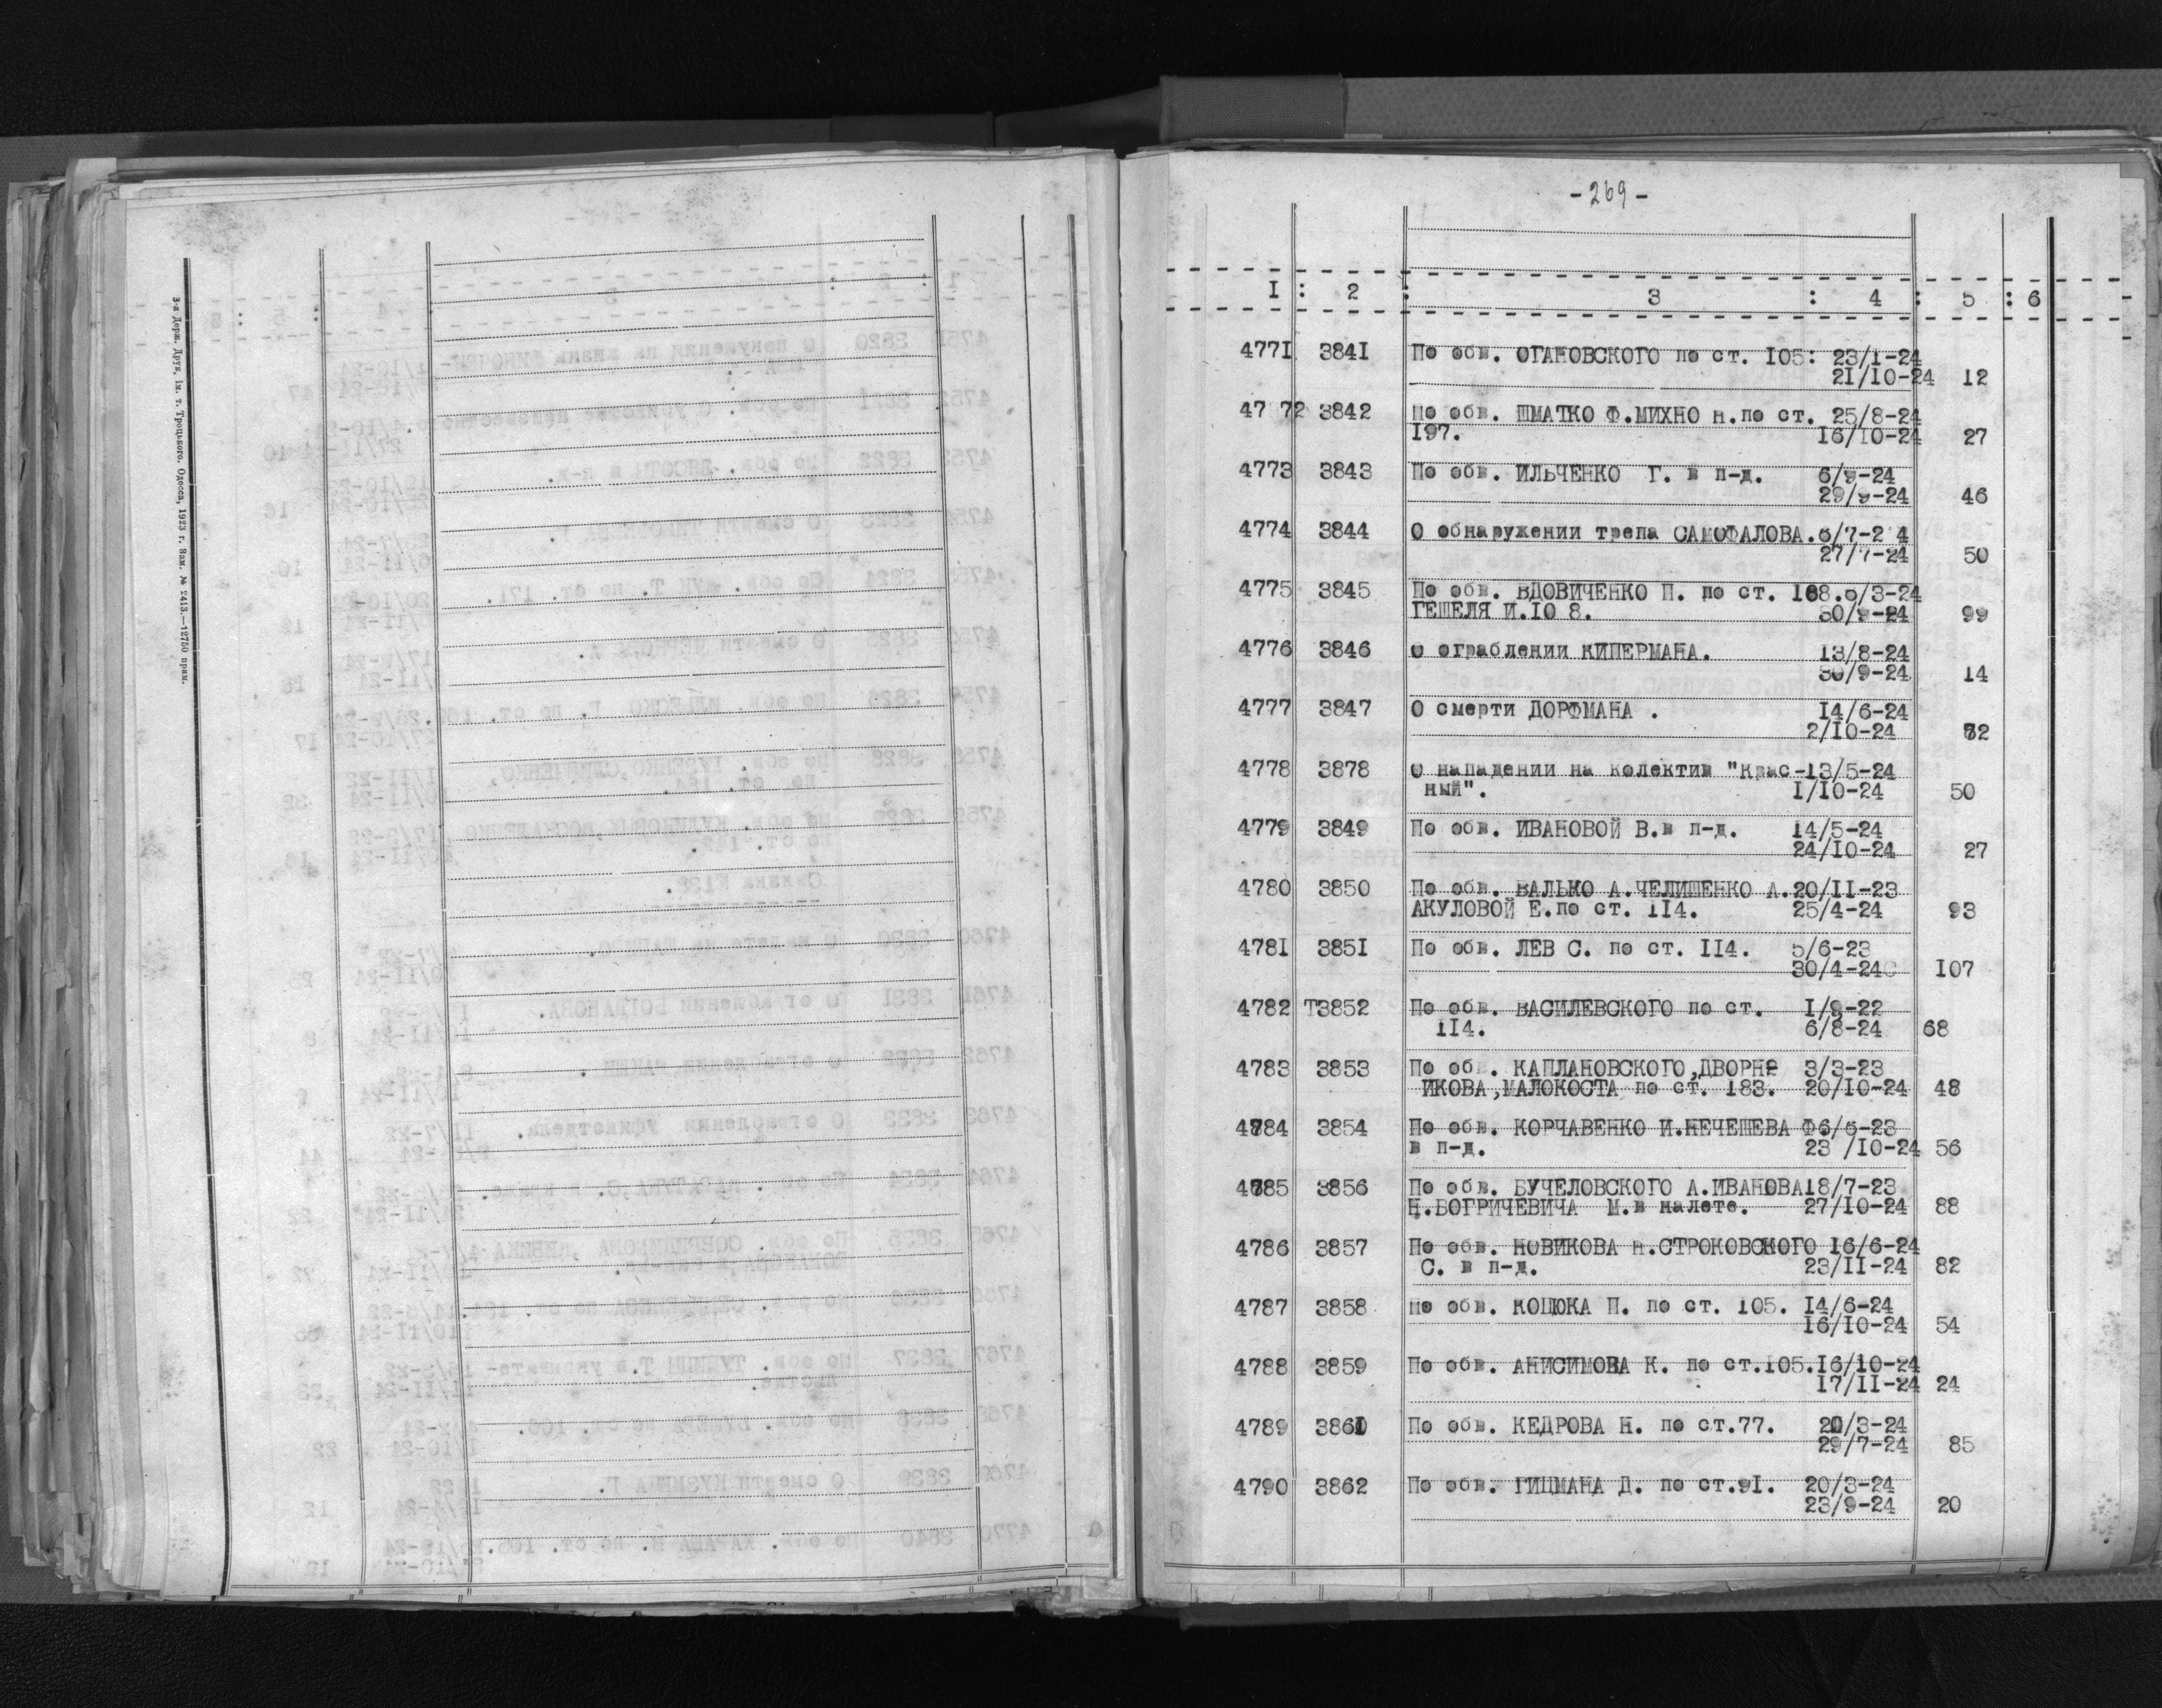 3-я Держ. Друк. ім. т. Троцького. Одесса, 1923 г. Зак. № 2413.—12750 прим.
-269-
I : 2 : 3 : 4 : 5 : 6
477I 384I По обв. ОГАНОВСКОГО по ст. I05: 23/I-24
2I/I0-24 I2
47 72 3842 По обв. ШМАТКО Ф.МИХНО Н.по ст. 25/8-24
I97. I6/I0-24 27
4773 3843 По обв. ИЛЬЧЕНКО Г. в п-д. 6/9-24
29/9-24 46
4774 3844 О обнаружении трепа САМОФАЛОВА.6/7-2 4
27/7-24 50
4775 3845 По обв. ВДОВИЧЕНКО П. по ст. /3-24
ГЕШЕЛЯ И.I0 8. 30/9-24 99
4776 3846 О ограблении КИПЕРМАНА. I3/8-24
30/9-24 I4
4777 3847 О смерти ДОРФМАНА . I4/6-24
2/I0-24
4778 3878 О нападении на колектив "Крас-I3/5-24
ный". I/I0-24 50
4779 3849 По обв. ИВАНОВОЙ В.в п-д. I4/5-24
24/I0-24 27
4780 3850 По обв. ВАЛЬКО А.ЧЕЛИШЕНКО А.20/II-23
АКУЛОВОЙ Е.по ст. II4. 25/4-24 93
478I 385I По обв. ЛЕВ С. по ст. II4. 5/6-23
30/4-24 I07
4782 Т3852 По обв. ВАСИЛЕВСКОГО по ст. I/9-22
II4. 6/8-24 68
4783 3853 По обв. КАПЛАНОВСКОГО,ДВОРН 3/3-23
ИКОВА,МАЛОКОСТА по ст. I83. 20/I0-24 48
4784 3854 По обв. КОРЧАВЕНКО И.НЕЧЕШЕВА Ф6/5-23
в п-д. 23 /I0-24 56
4785 3856 По обв. БУЧЕЛОВСКОГО А.ИВАНОВАI8/7-23
Н.БОГРИЧЕВИЧА М.в налете. 27/I0-24 88
4786 3857 По обв. НОВИКОВА Н.СТРОКОВСКОГО I6/6-24
С. в п-д. 23/II-24 82
4787 3858 По обв. КОЦЮКА П. по ст. I05. I4/6-24
I6/I0-24 54
4788 3859 По обв. АНИСИМОВА К. по ст.I05.I6/I0-24
I7/II-24 24
4789 386I По обв. КЕДРОВА Н. по ст.77. 20/3-24
29/7-24 85
4790 3862 По обв. ГИЦМАНА Д. по ст.9I. 20/3-24
23/9-24 20